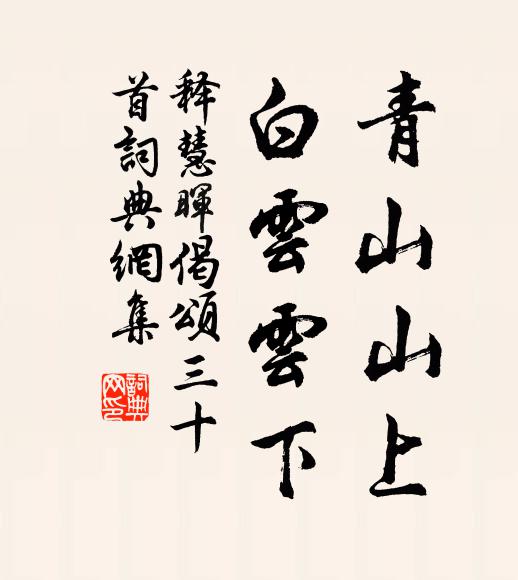 青山山上
白雲雲下
释慧暉偈頌三十
首詞典網集
詞典网印